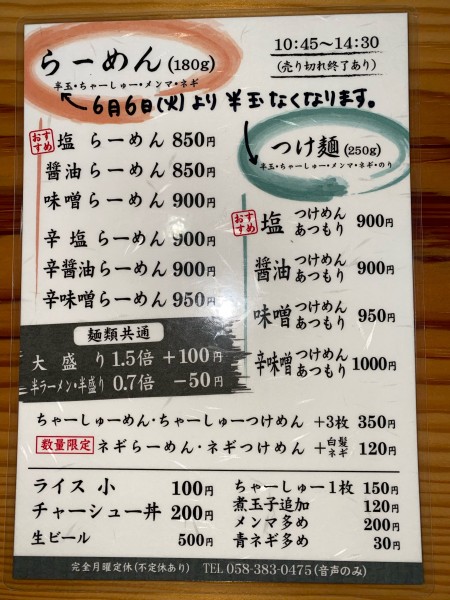 らーめん(180g)
半玉・ちゃーしゅー・メンマ・ネギ
10:45～14:30
(売り切れ終了あり)
6月6日(火)より半玉なくなります。
おすすめ 塩らーめん 850円
醤油らーめん 850円
味噌らーめん 900円
辛塩らーめん 900円
辛醤油らーめん 900円
辛味噌らーめん 950円
つけ麺(250g)
半玉・ちゃーしゅー・メンマ・ネギ・のり
おすすめ 塩 つけめん あつもり 900円
醤油 つけめん あつもり 900円
味噌 つけめん あつもり 950円
辛味噌 つけめん あつもり 1000円
麺類共通
大盛り 1.5倍 +100円
半ラーメン・半盛り 0.7倍 -50円
ちゃーしゅーめん・ちゃーしゅーつけめん +3枚 350円
数量限定 ネギらーめん・ネギつけめん +白髪ネギ 120円
ライス 小 100円
チャーシュー丼 200円
生ビール 500円
ちゃーしゅー1枚 150円
煮玉子追加 120円
メンマ多め 200円
青ネギ多め 30円
完全月曜定休(不定休あり) TEL 058-383-0475(音声のみ)